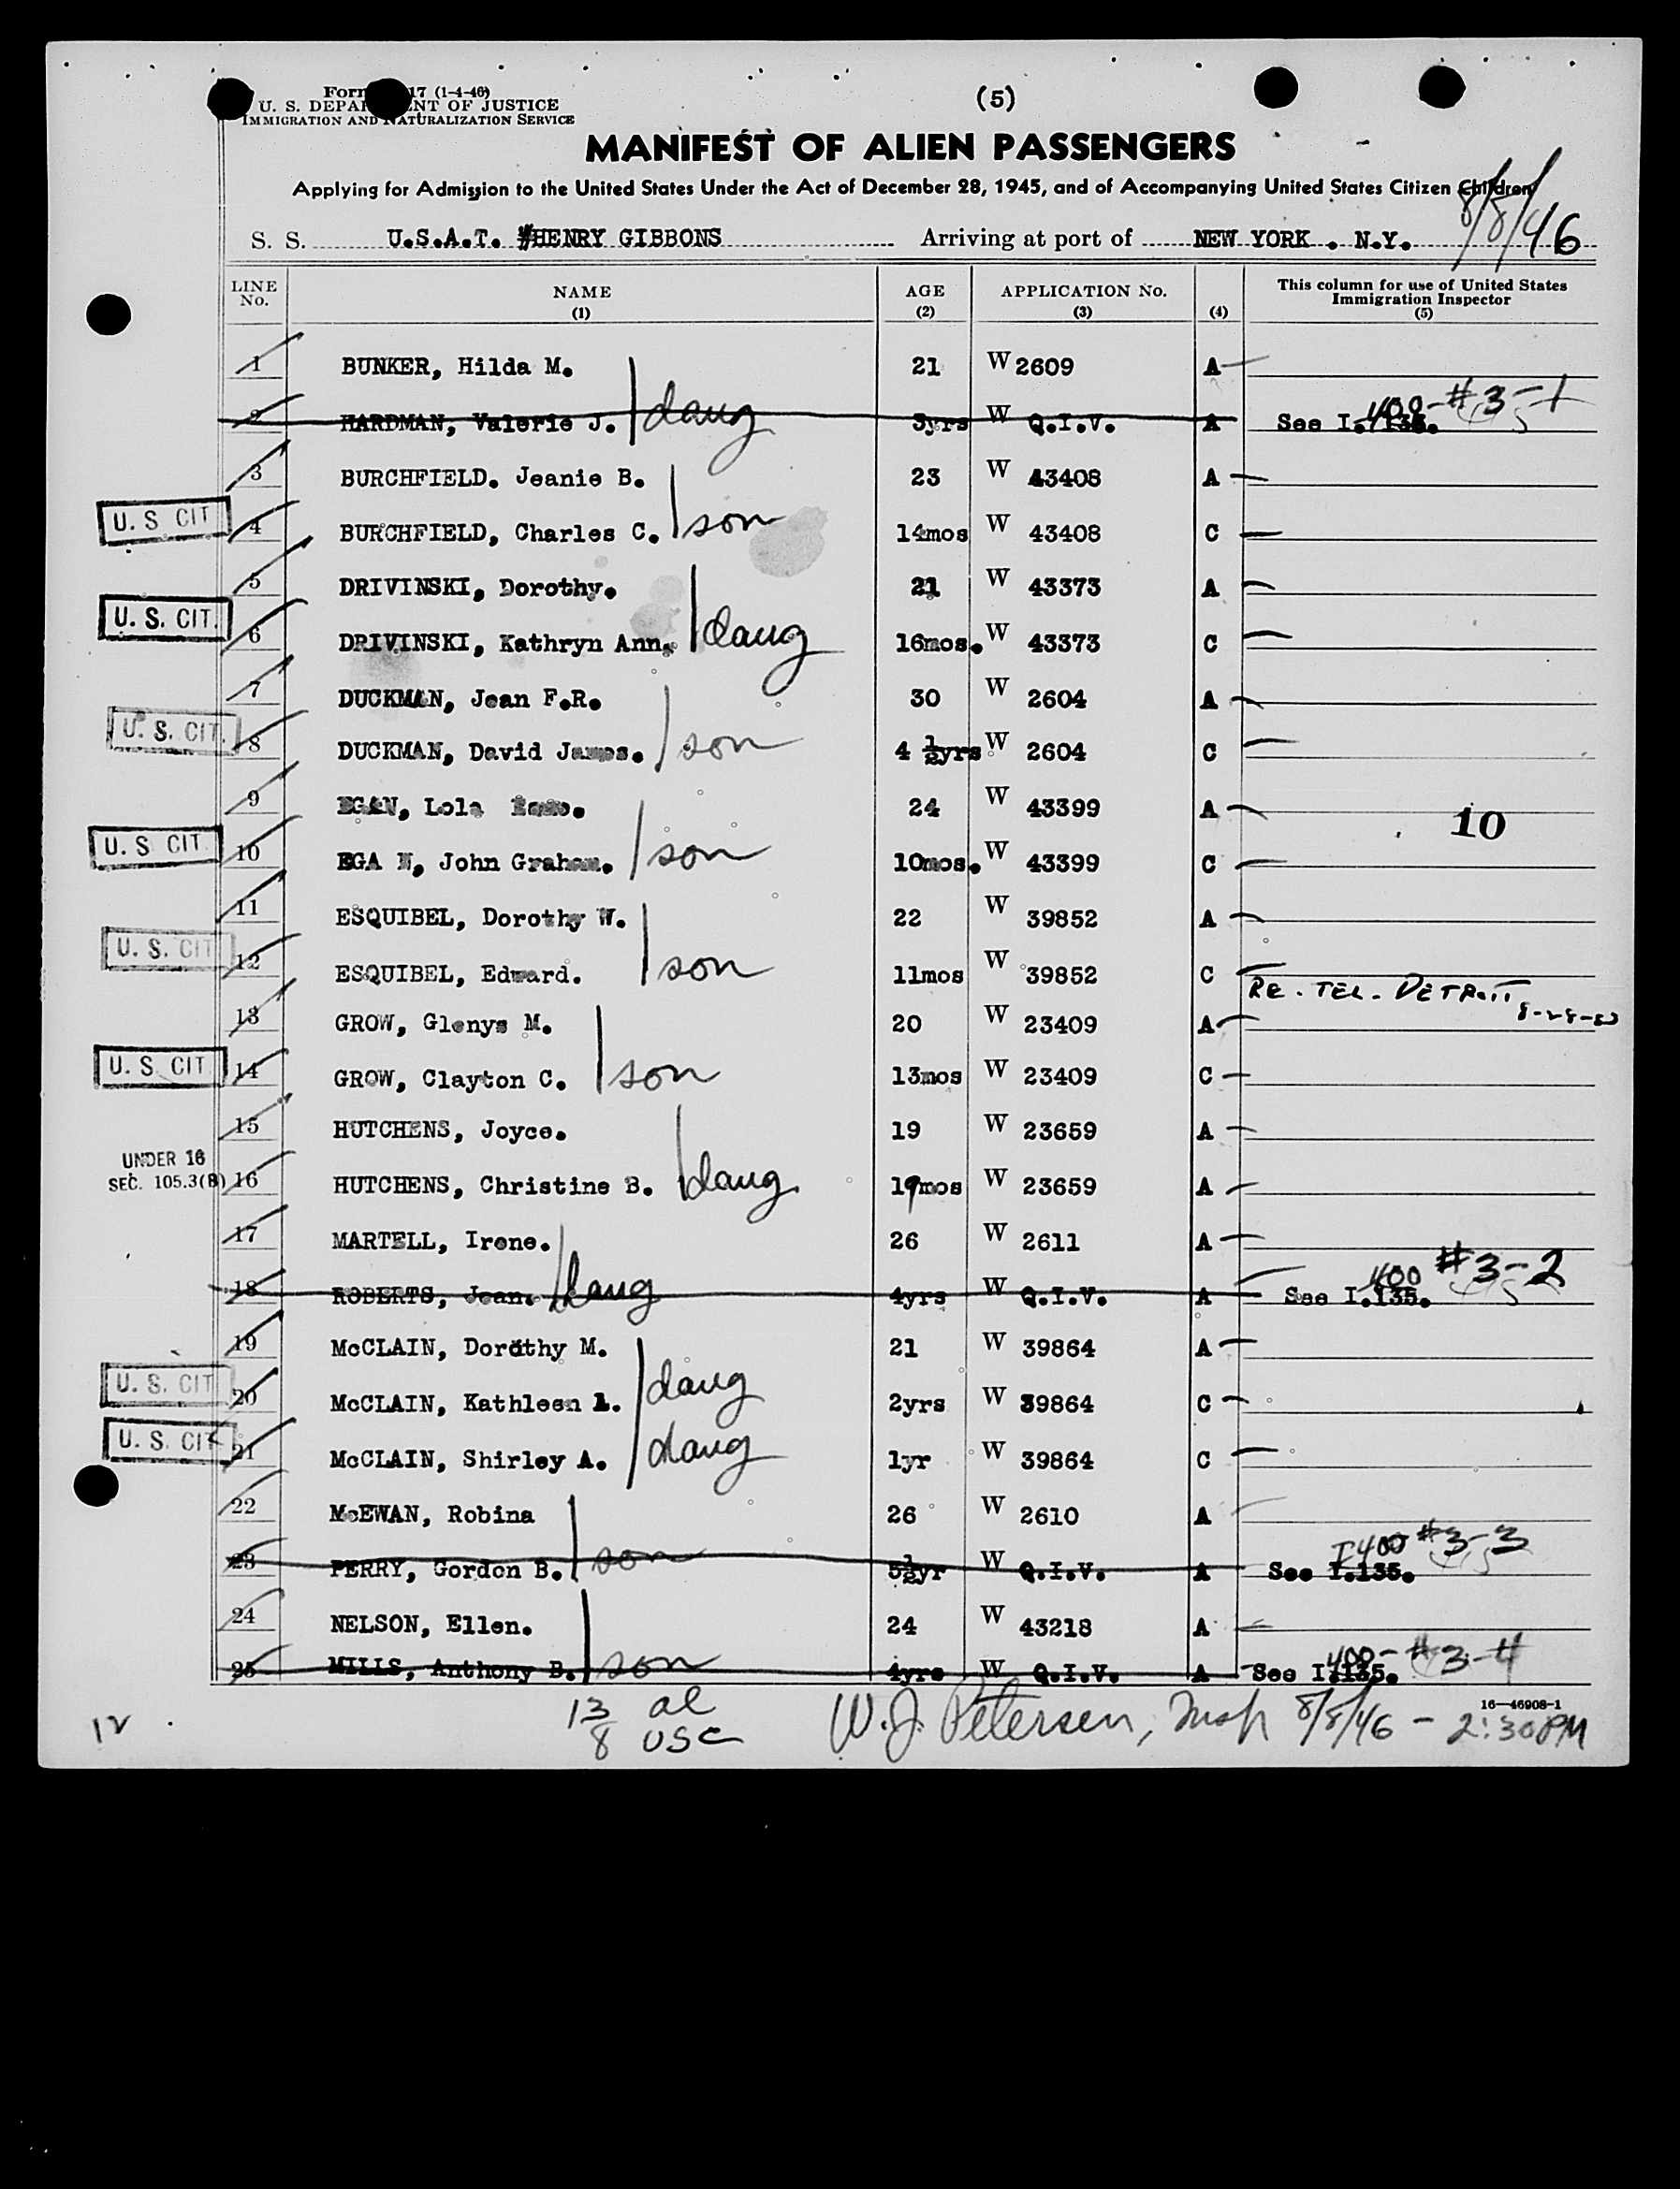 Form 17 (1-4-46)
U. S. DEPARTMENT OF JUSTICE
IMMIGRATION AND NATURALIZATION SERVICE
(5)
MANIFEST OF ALIEN PASSENGERS
Applying for Admission to the United States Under the Act of December 28, 1945, and of Accompanying United States Citizen Children
8/8/46
S. S. U.S.A.T. HENRY GIBBONS Arriving at port of NEW YORK . N.Y.
LINE No. NAME (1) AGE (2) APPLICATION No. (3) (4) This column for use of United States Immigration Inspector (5)
1 BUNKER, Hilda M. 21 W 2609 A
2 HARDMAN, Valerie J. daug 3yrs W Q.I.V. A See I.135. 400-#3-1
3 BURCHFIELD. Jeanie B. 23 W 43408 A
U. S CIT 4 BURCHFIELD, Charles C. son 14mos W 43408 C
5 DRIVINSKI, Dorothy. 21 W 43373 A
U. S. CIT. 6 DRIVINSKI, Kathryn Ann. daug 16mos. W 43373 C
7 DUCKMAN, Jean F.R. 30 W 2604 A
U. S. CIT. 8 DUCKMAN, David James. son 4 ½yrs W 2604 C
9 EGAN, Lola 24 W 43399 A
10
U. S CIT 10 EGA N, John Graham. son 10mos. W 43399 C
11 ESQUIBEL, Dorothy W. 22 W 39852 A
U. S. CIT 12 ESQUIBEL, Edward. son 11mos W 39852 C
RE. TEL. DETROIT
13 GROW, Glenys M. 20 W 23409 A
U. S. CIT 14 GROW, Clayton C. son 13mos W 23409 C
15 HUTCHENS, Joyce. 19 W 23659 A
UNDER 16
SEC. 105.3(B) 16 HUTCHENS, Christine B. daug 19mos W 23659 A
17 MARTELL, Irene. 26 W 2611 A
18 ROBERTS, Jean. daug 4yrs W Q.I.V. A See I.135. 400 #3-2
19 McCLAIN, Dorothy M. 21 W 39864 A
U. S. CIT 20 McCLAIN, Kathleen L. daug 2yrs W 39864 C
U. S. CIT 21 McCLAIN, Shirley A. daug 1yr W 39864 C
22 McEWAN, Robina 26 W 2610 A
23 PERRY, Gordon B. son 5½yr W Q.I.V. A See I.135. I400 #3-3
24 NELSON, Ellen. 24 W 43218 A
25 MILLS, Anthony B. son 4yrs W Q.I.V. A See I.135. 400-#3-4
16—46908-1
12 13 al W. J. Petersen, Insp 8/8/46 - 2:30PM
8 USC